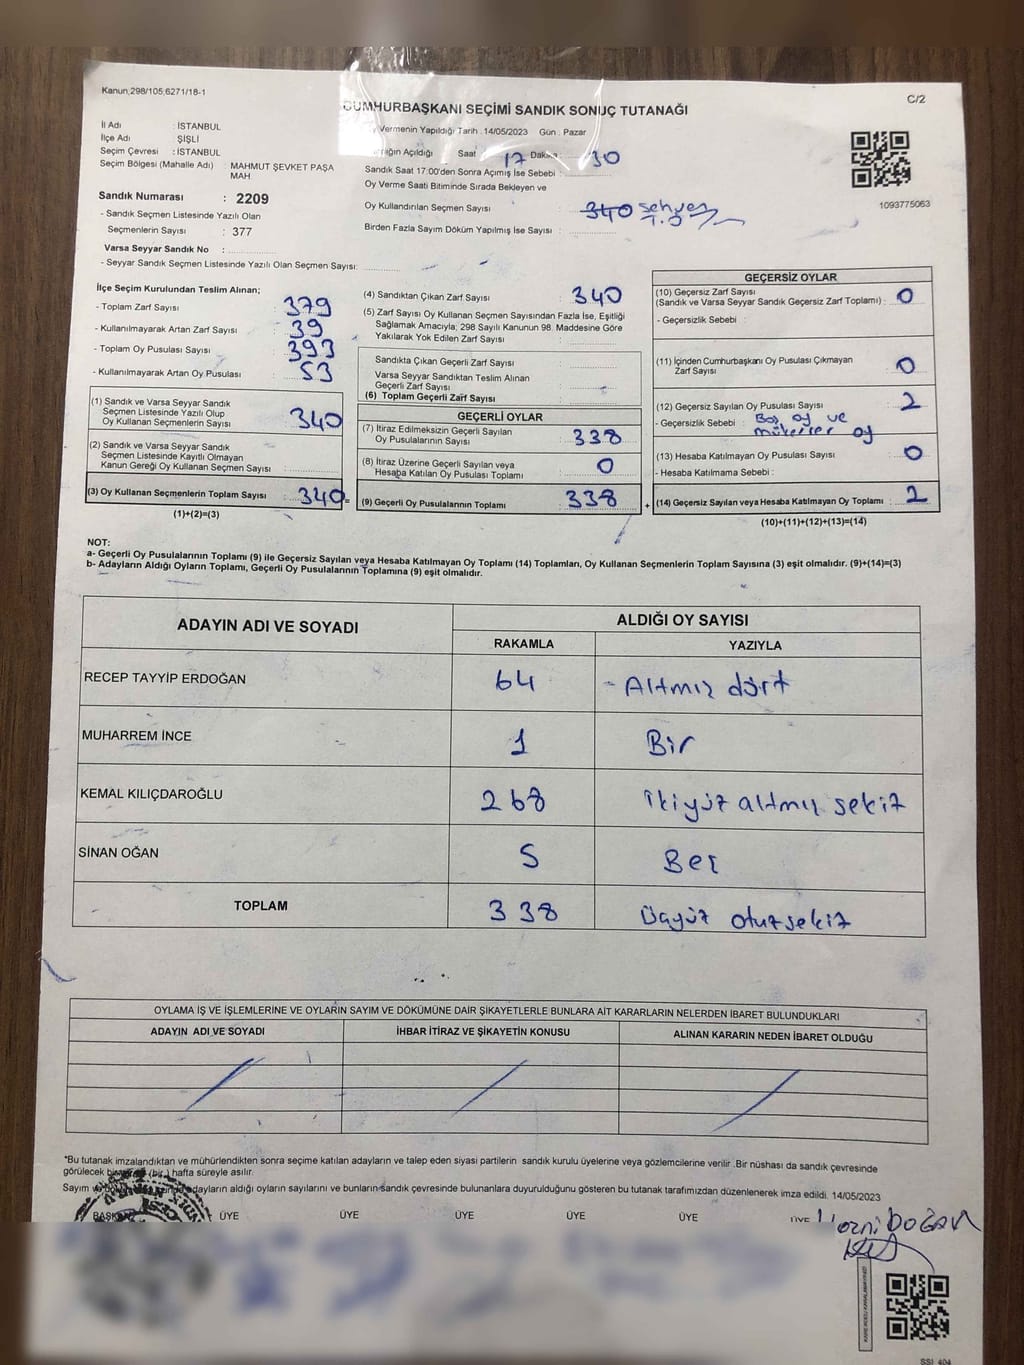 Kanun;298/105;6271/18-1
C/2
CUMHURBAŞKANI SEÇİMİ SANDIK SONUÇ TUTANAĞI
İl Adı : İSTANBUL
İlçe Adı : ŞİŞLİ
Seçim Çevresi : İSTANBUL
Seçim Bölgesi (Mahalle Adı) : MAHMUT ŞEVKET PAŞA MAH
Sandık Numarası : 2209
- Sandık Seçmen Listesinde Yazılı Olan
Seçmenlerin Sayısı : 377
Varsa Seyyar Sandık No :
- Seyyar Sandık Seçmen Listesinde Yazılı Olan Seçmen Sayısı:
Vermenin Yapıldığı Tarih :14/05/2023 Gün : Pazar
Açıldığı Saat 17 Dakika : 30
Sandık Saat 17:00'den Sonra Açımış İse Sebebi :
Oy Verme Saati Bitiminde Sırada Bekleyen ve
Oy Kullandırılan Seçmen Sayısı : 340 sehven
Birden Fazla Sayım Döküm Yapılmış İse Sayısı :
1093775063
İlçe Seçim Kurulundan Teslim Alınan;
- Toplam Zarf Sayısı : 379
- Kullanılmayarak Artan Zarf Sayısı : 39
- Toplam Oy Pusulası Sayısı : 393
- Kullanılmayarak Artan Oy Pusulası : 53
(1) Sandık ve Varsa Seyyar Sandık
Seçmen Listesinde Yazılı Olup
Oy Kullanan Seçmenlerin Sayısı : 340
(2) Sandık ve Varsa Seyyar Sandık
Seçmen Listesinde Kayıtlı Olmayan
Kanun Gereği Oy Kullanan Seçmen Sayısı :
(3) Oy Kullanan Seçmenlerin Toplam Sayısı : 340 =
(1)+(2)=(3)
(4) Sandıktan Çıkan Zarf Sayısı : 340
(5) Zarf Sayısı Oy Kullanan Seçmen Sayısından Fazla İse, Eşitliği
Sağlamak Amacıyla; 298 Sayılı Kanunun 98. Maddesine Göre
Yakılarak Yok Edilen Zarf Sayısı :
Sandıkta Çıkan Geçerli Zarf Sayısı :
Varsa Seyyar Sandıktan Teslim Alınan
Geçerli Zarf Sayısı :
(6) Toplam Geçerli Zarf Sayısı :
GEÇERLİ OYLAR
(7) İtiraz Edilmeksizin Geçerli Sayılan
Oy Pusulalarının Sayısı : 338
(8) İtiraz Üzerine Geçerli Sayılan veya
Hesaba Katılan Oy Pusulası Toplamı : 0
(9) Geçerli Oy Pusulalarının Toplamı : 338 +
GEÇERSİZ OYLAR
(10) Geçersiz Zarf Sayısı
(Sandık ve Varsa Seyyar Sandık Geçersiz Zarf Toplamı) : 0
- Geçersizlik Sebebi :
(11) İçinden Cumhurbaşkanı Oy Pusulası Çıkmayan
Zarf Sayısı : 0
(12) Geçersiz Sayılan Oy Pusulası Sayısı : 2
- Geçersizlik Sebebi : Boş oy ve
mükerrer oy
(13) Hesaba Katılmayan Oy Pusulası Sayısı : 0
- Hesaba Katılmama Sebebi :
(14) Geçersiz Sayılan veya Hesaba Katılmayan Oy Toplamı : 2
(10)+(11)+(12)+(13)=(14)
NOT:
a- Geçerli Oy Pusulalarının Toplamı (9) ile Geçersiz Sayılan veya Hesaba Katılmayan Oy Toplamı (14) Toplamları, Oy Kullanan Seçmenlerin Toplam Sayısına (3) eşit olmalıdır. (9)+(14)=(3)
b- Adayların Aldığı Oyların Toplamı, Geçerli Oy Pusulalarının Toplamına (9) eşit olmalıdır.
ADAYIN ADI VE SOYADI
ALDIĞI OY SAYISI
RAKAMLA YAZIYLA
RECEP TAYYİP ERDOĞAN 64 - Altmış dört
MUHARREM İNCE 1 Bir
KEMAL KILIÇDAROĞLU 268 ikiyüz altmış sekiz
SİNAN OĞAN 5 Beş
TOPLAM 338 üçyüz otuzsekiz
OYLAMA İŞ VE İŞLEMLERİNE VE OYLARIN SAYIM VE DÖKÜMÜNE DAİR ŞİKAYETLERLE BUNLARA AİT KARARLARIN NELERDEN İBARET BULUNDUKLARI
ADAYIN ADI VE SOYADI İHBAR İTİRAZ VE ŞİKAYETİN KONUSU ALINAN KARARIN NEDEN İBARET OLDUĞU
*Bu tutanak imzalandıktan ve mühürlendikten sonra seçime katılan adayların ve talep eden siyasi partilerin sandık kurulu üyelerine veya gözlemcilerine verilir .Bir nüshası da sandık çevresinde
görülecek bir (bir ) hafta süreyle asılır.
Sayım adayların aldığı oyların sayılarını ve bunların sandık çevresinde bulunanlara duyurulduğunu gösteren bu tutanak tarafımızdan düzenlenerek imza edildi. 14/05/2023
BAŞKAN ÜYE ÜYE ÜYE ÜYE ÜYE ÜYE
DOĞAN
SSI 404